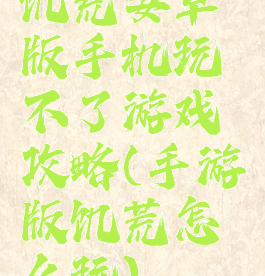 饥荒安卓
版手机玩
不了游戏
攻略(手游
版饥荒怎
么玩)